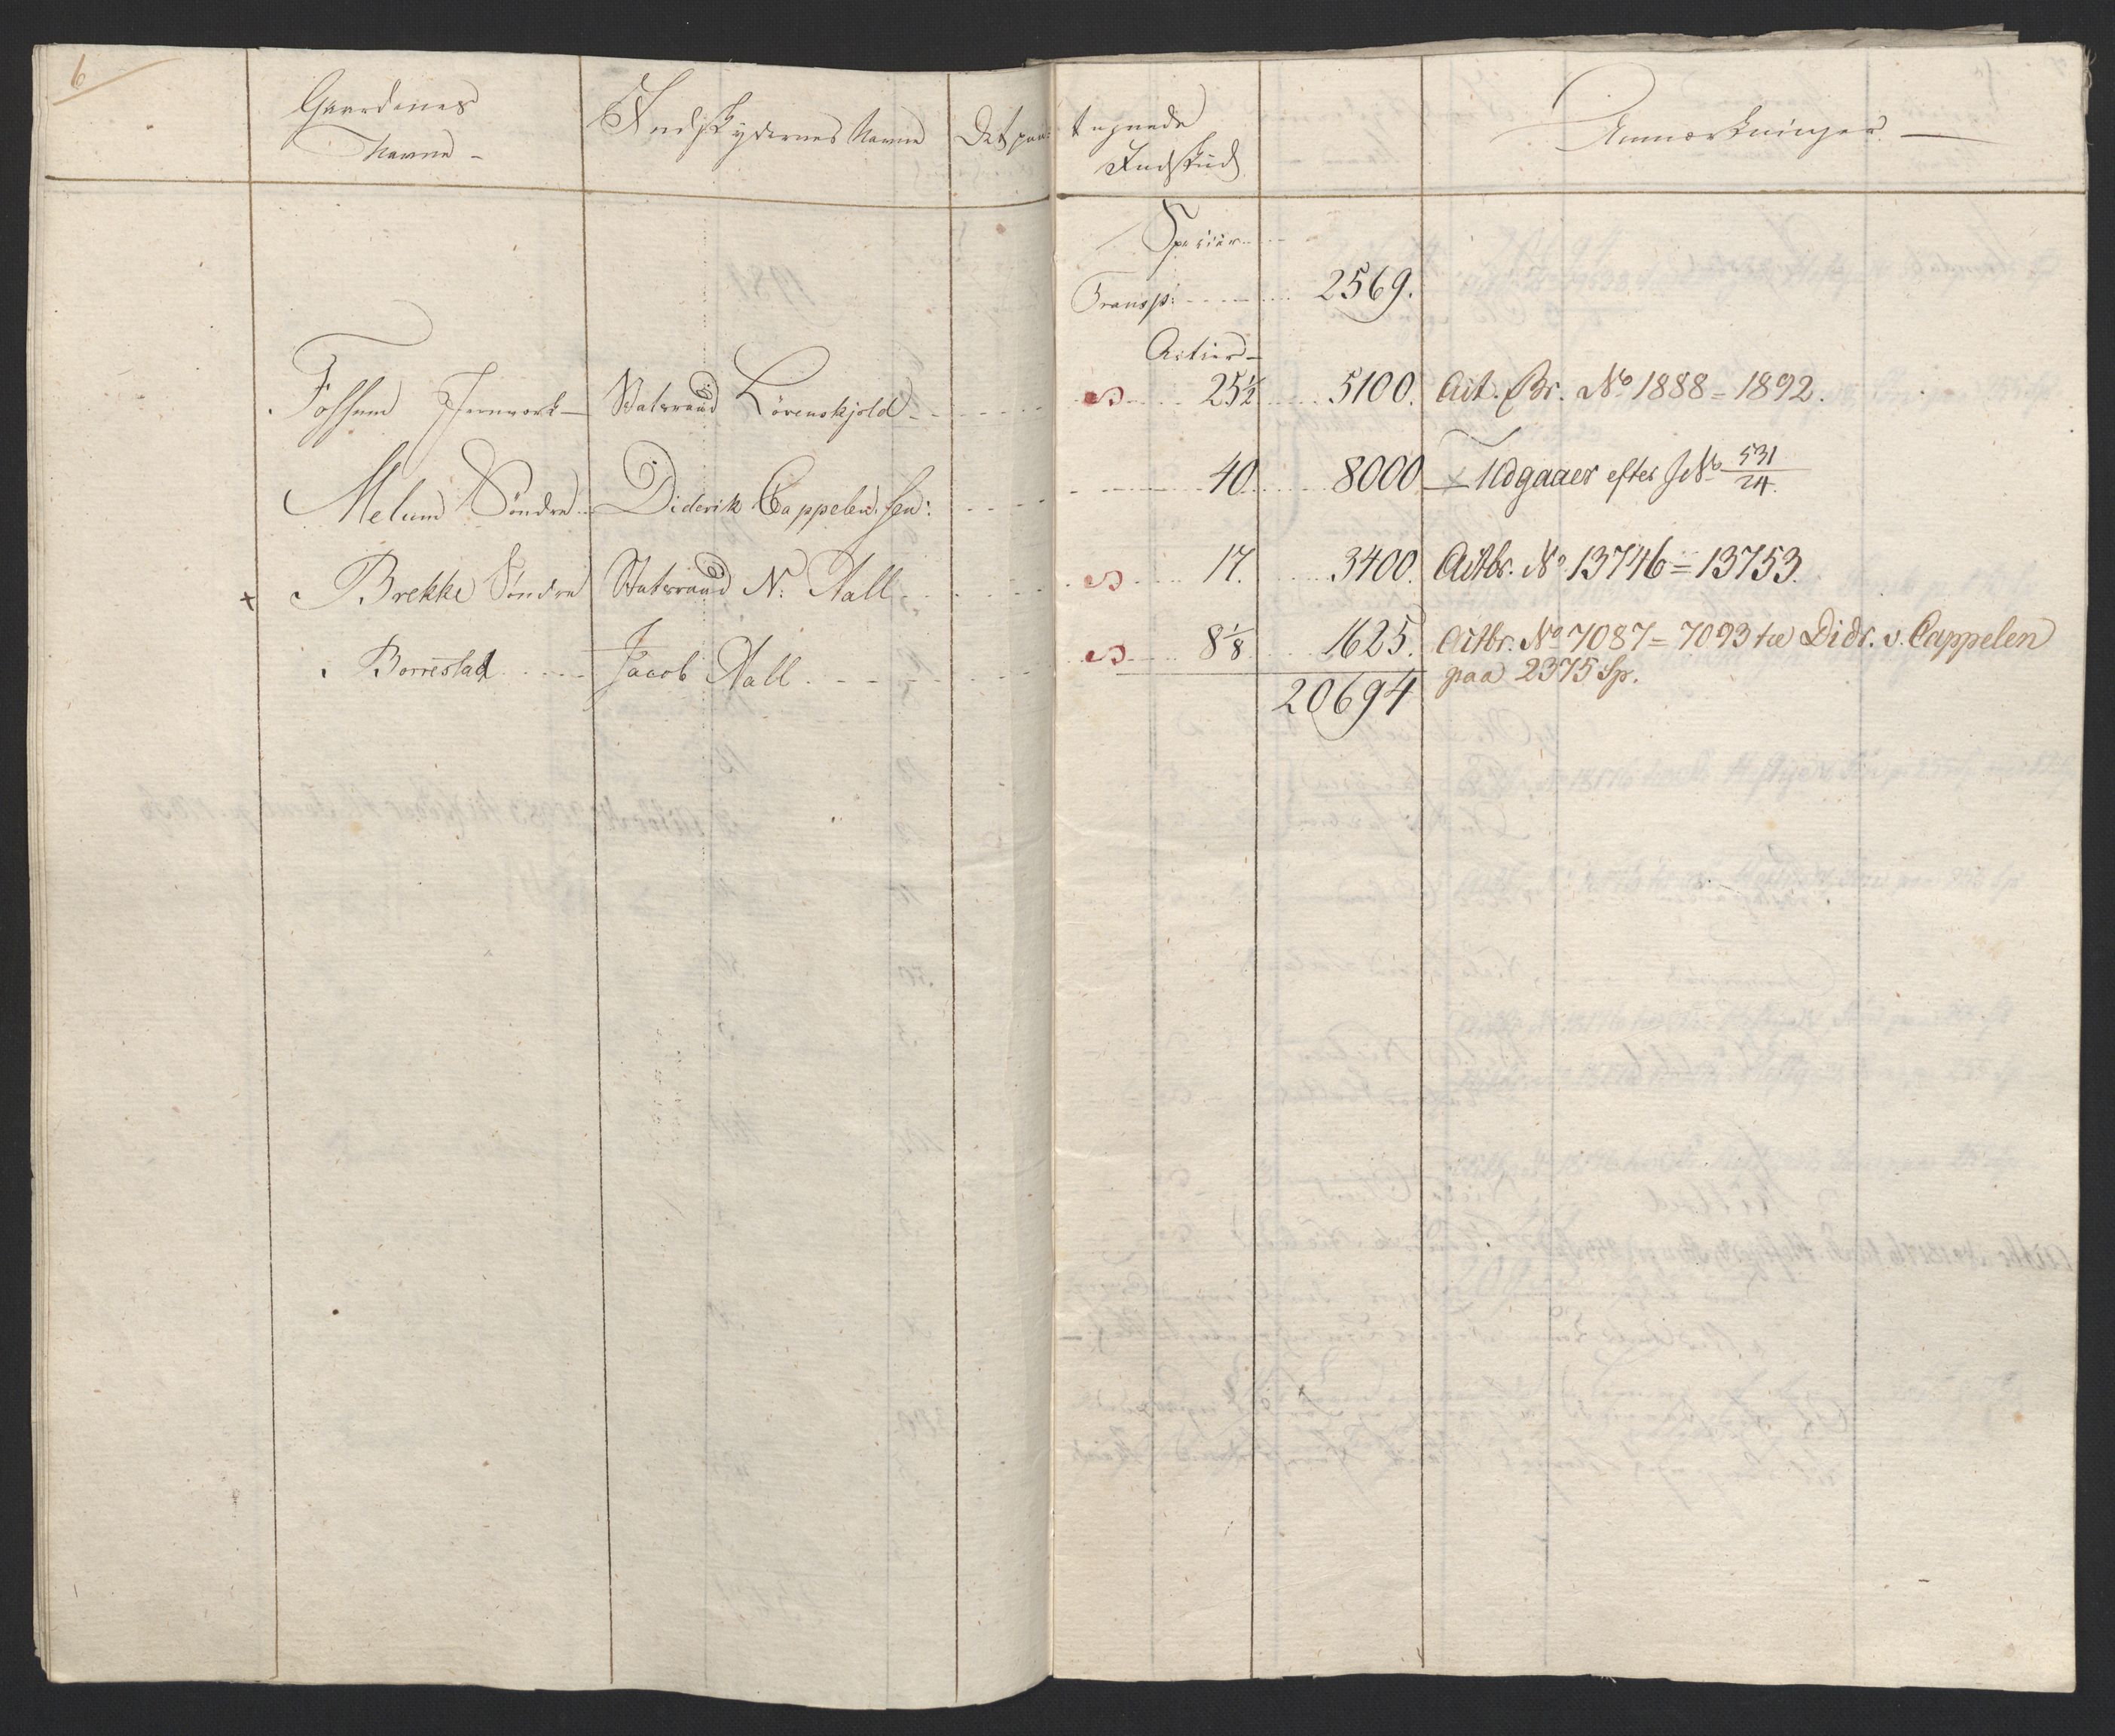 6
Gaardenes Navne - Indskydernes Navne Det paa= tegnede Indskud Anmærkninger -
Specier
Transp: 2569.
Actier -
Fossum Jernværk - Statsraad Lövenskjold 25½ 5100. Act. Br. No 1888 = 1892.
Melum Söndre Diderik Cappelen Sen: 40 8000 Udgaaer efter J No 531/24.
+ Brekke Söndre Statsraad N: Aall 17. 3400. Actbr. No 13746 = 13753.
Borrestad Jacob Aall 8⅛ 1625. Actbr. No 7087 = 7093 til Didr. v. Cappelen
paa 2375 Sp.
20694